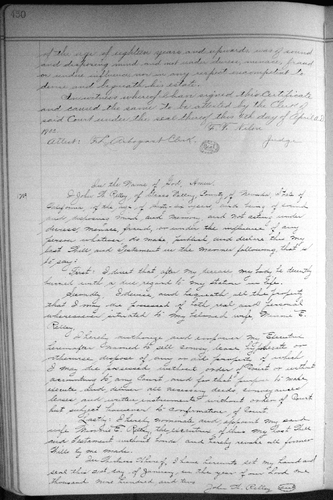 430
of the age of eighteen years and upwards was of sound
and disposing mind and not under duress, menace, fraud
or undue influence nor in any respect incompetent to
devise and bequeath his estate.
In witness whereof I have signed this Certificate
and caused the same to be attested by the Clerk of
said Court under the seal thereof this 8th day of April A.D.
F. T. Nilon
Attest: F. L. Arbogast Clerk. Judge
In the Name of God, Amen.
I John R. Rilley, of Grass Valley, County of Nevada, State of
California, of the age of years, and being of sound
and disposing mind and memory, and not acting under
duress, menace, fraud, or under the influence of any
person whatever do make publish and declare this my
last Will and Testament in the manner following, that is
to say:
First: I direct that after my decease my body be decently
buried with due regard to my station in life.
Secondly: I devise and bequeath all the property
that I may die possessed of both real and personal
wheresoever situated to my beloved wife E.
Rilley.
I hereby authorize and empower my Executrix
hereinafter named to sell, convey, lease, hypothecate or
otherwise dispose of any or all property of which
I may die possessed without order of Court or without
accounting to any Court and for that purpose to make
execute and deliver all necessary deeds, conveyances
leases and written instruments without order of Court
but subject however to confirmation of Court.
Lastly: I hereby nominate and appoint my said
wife E. Rilley, the executrix of this my last Will
and Testament without bonds and hereby revoke all former
Wills by me made.
In Witness Whereof, I have hereunto set my hand and
seal this day of January, in the year of our Lord one
thousand nine hundred and two
John R. Rilley